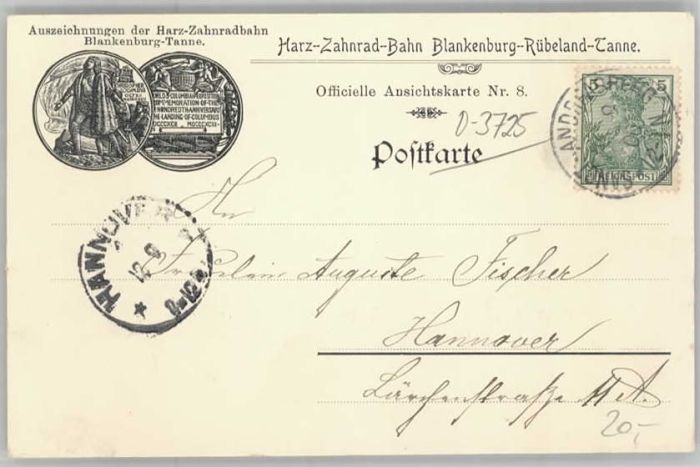 Auszeichnungen der Harz-Zahnradbahn
Blankenburg-Tanne.
WORLD'S COLUMBIAN EXPOSITION
COMMEMORATION OF THE
HUNDREDTH ANNIVERSARY
LANDING OF COLUMBUS
MDCCCXCII MDCCCXCIII
Harz-Zahnrad-Bahn Blankenburg-Rübeland-Tanne.
Officielle Ansichtskarte Nr. 8.
D-3725
Postkarte
5
REICHSPOST
An
Fräulein Auguste Fischer
HANNOVER
12 9
Hannover
Lärchenstraße 11 A.
20,-